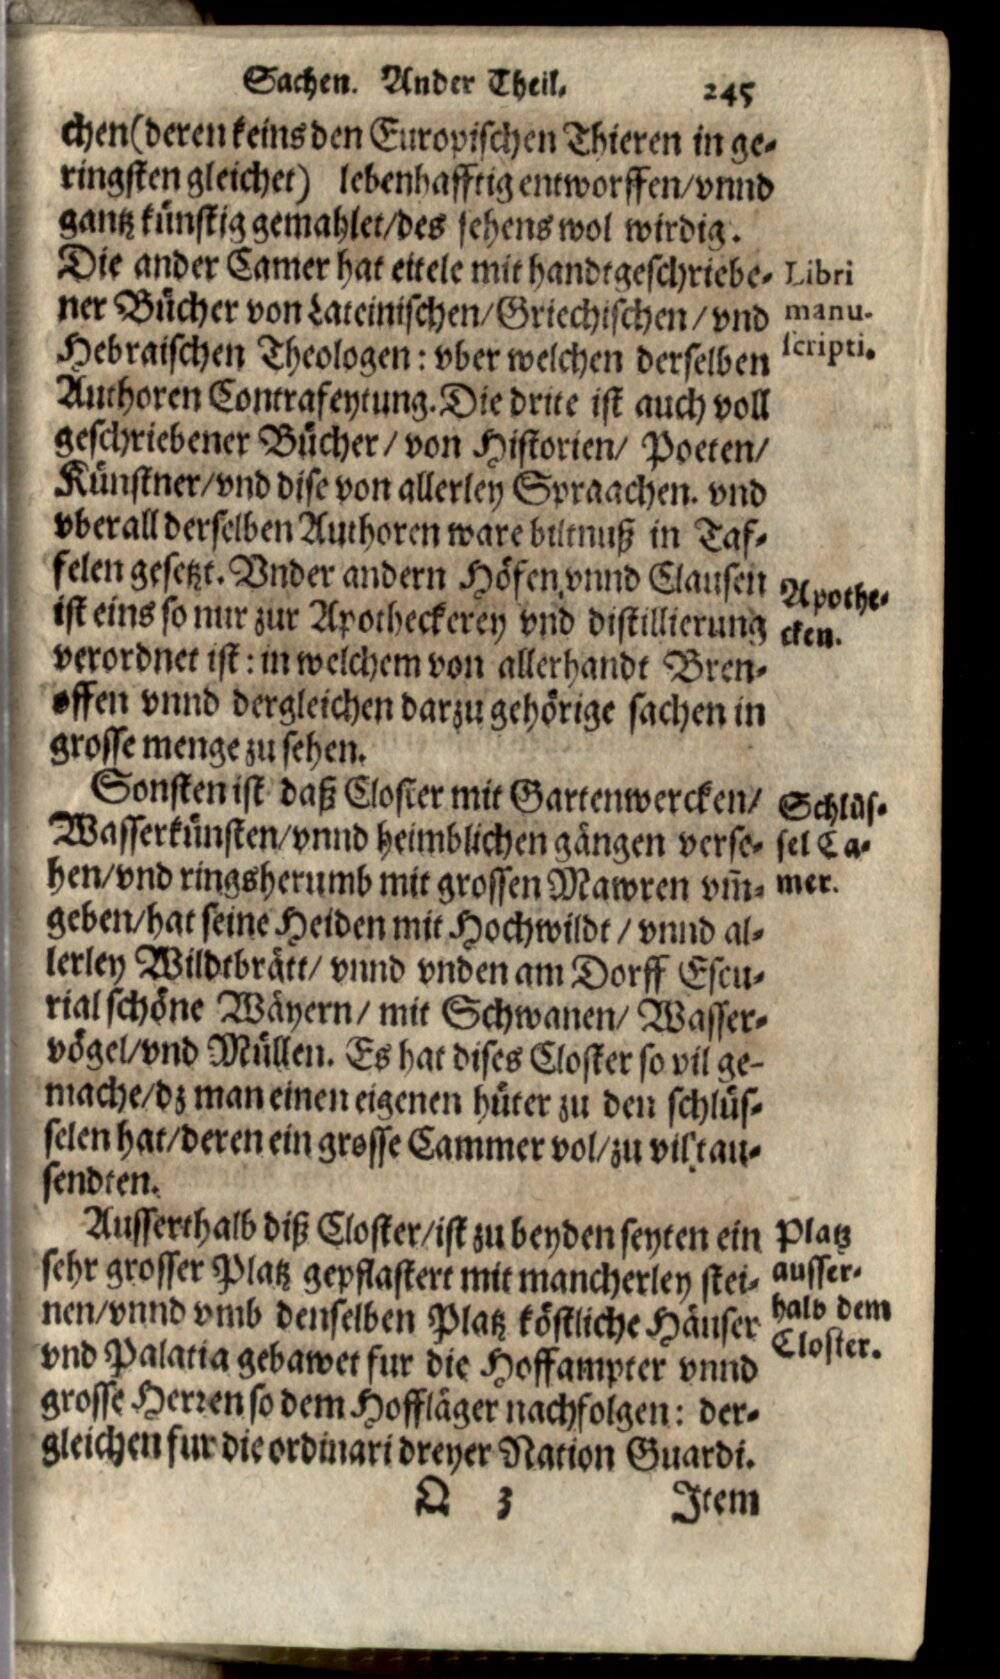 Sachen. Ander Theil. 245
chen (deren keins den Europischen Thieren in ge-
ringsten gleichet) lebenhafftig entworffen/vnnd
gantz künstig gemahlet/des sehens wol wirdig.
Die ander Camer hat eitele mit handtgeschriebe-
ner Bücher von Lateinischen/Griechischen/vnd
Hebraischen Theologen: vber welchen derselben
Authoren Contrafeytung. Die drite ist auch voll
geschriebener Bücher/ von Historien/ Poeten/
Künstner/vnd dise von allerley Spraachen. vnd
vberall derselben Authoren ware biltnuß in Taf-
felen gesetzt. Vnder andern Höfen vnnd Clausen
ist eins so nur zur Apotheckerey vnd distillierung
verordnet ist: in welchem von allerhandt Bren-
offen vnnd dergleichen darzu gehörige sachen in
grosse menge zu sehen.
Sonsten ist daß Closter mit Gartenwercken/
Wasserkünsten/vnnd heimblichen gängen verse-
hen/vnd ringsherumb mit grossen Mawren vm̃-
geben/hat seine Heiden mit Hochwildt/ vnnd al-
lerley Wildtbrätt/ vnnd vnden am Dorff Escu-
rial schöne Wäyern/ mit Schwanen/ Wasser-
vögel/vnd Müllen. Es hat dises Closter so vil ge-
mache/dz man einen eigenen hüter zu den schlüs-
selen hat/deren ein grosse Cammer vol/zu vil tau-
sendten.
Ausserthalb diß Closter/ist zu beyden seyten ein
sehr grosser Platz gepflastert mit mancherley stei-
nen/vnnd vmb denselben Platz köstliche Häuser
vnd Palatia gebawet fur die Hoffampter vnnd
grosse Herren so dem Hoffläger nachfolgen: der-
gleichen fur die ordinari dreyer Nation Guardi.
Q 3 Item
Libri
manu-
scripti.
Apothe-
cken.
Schlüs-
sel Ca-
mer.
Platz
ausser-
halb dem
Closter.